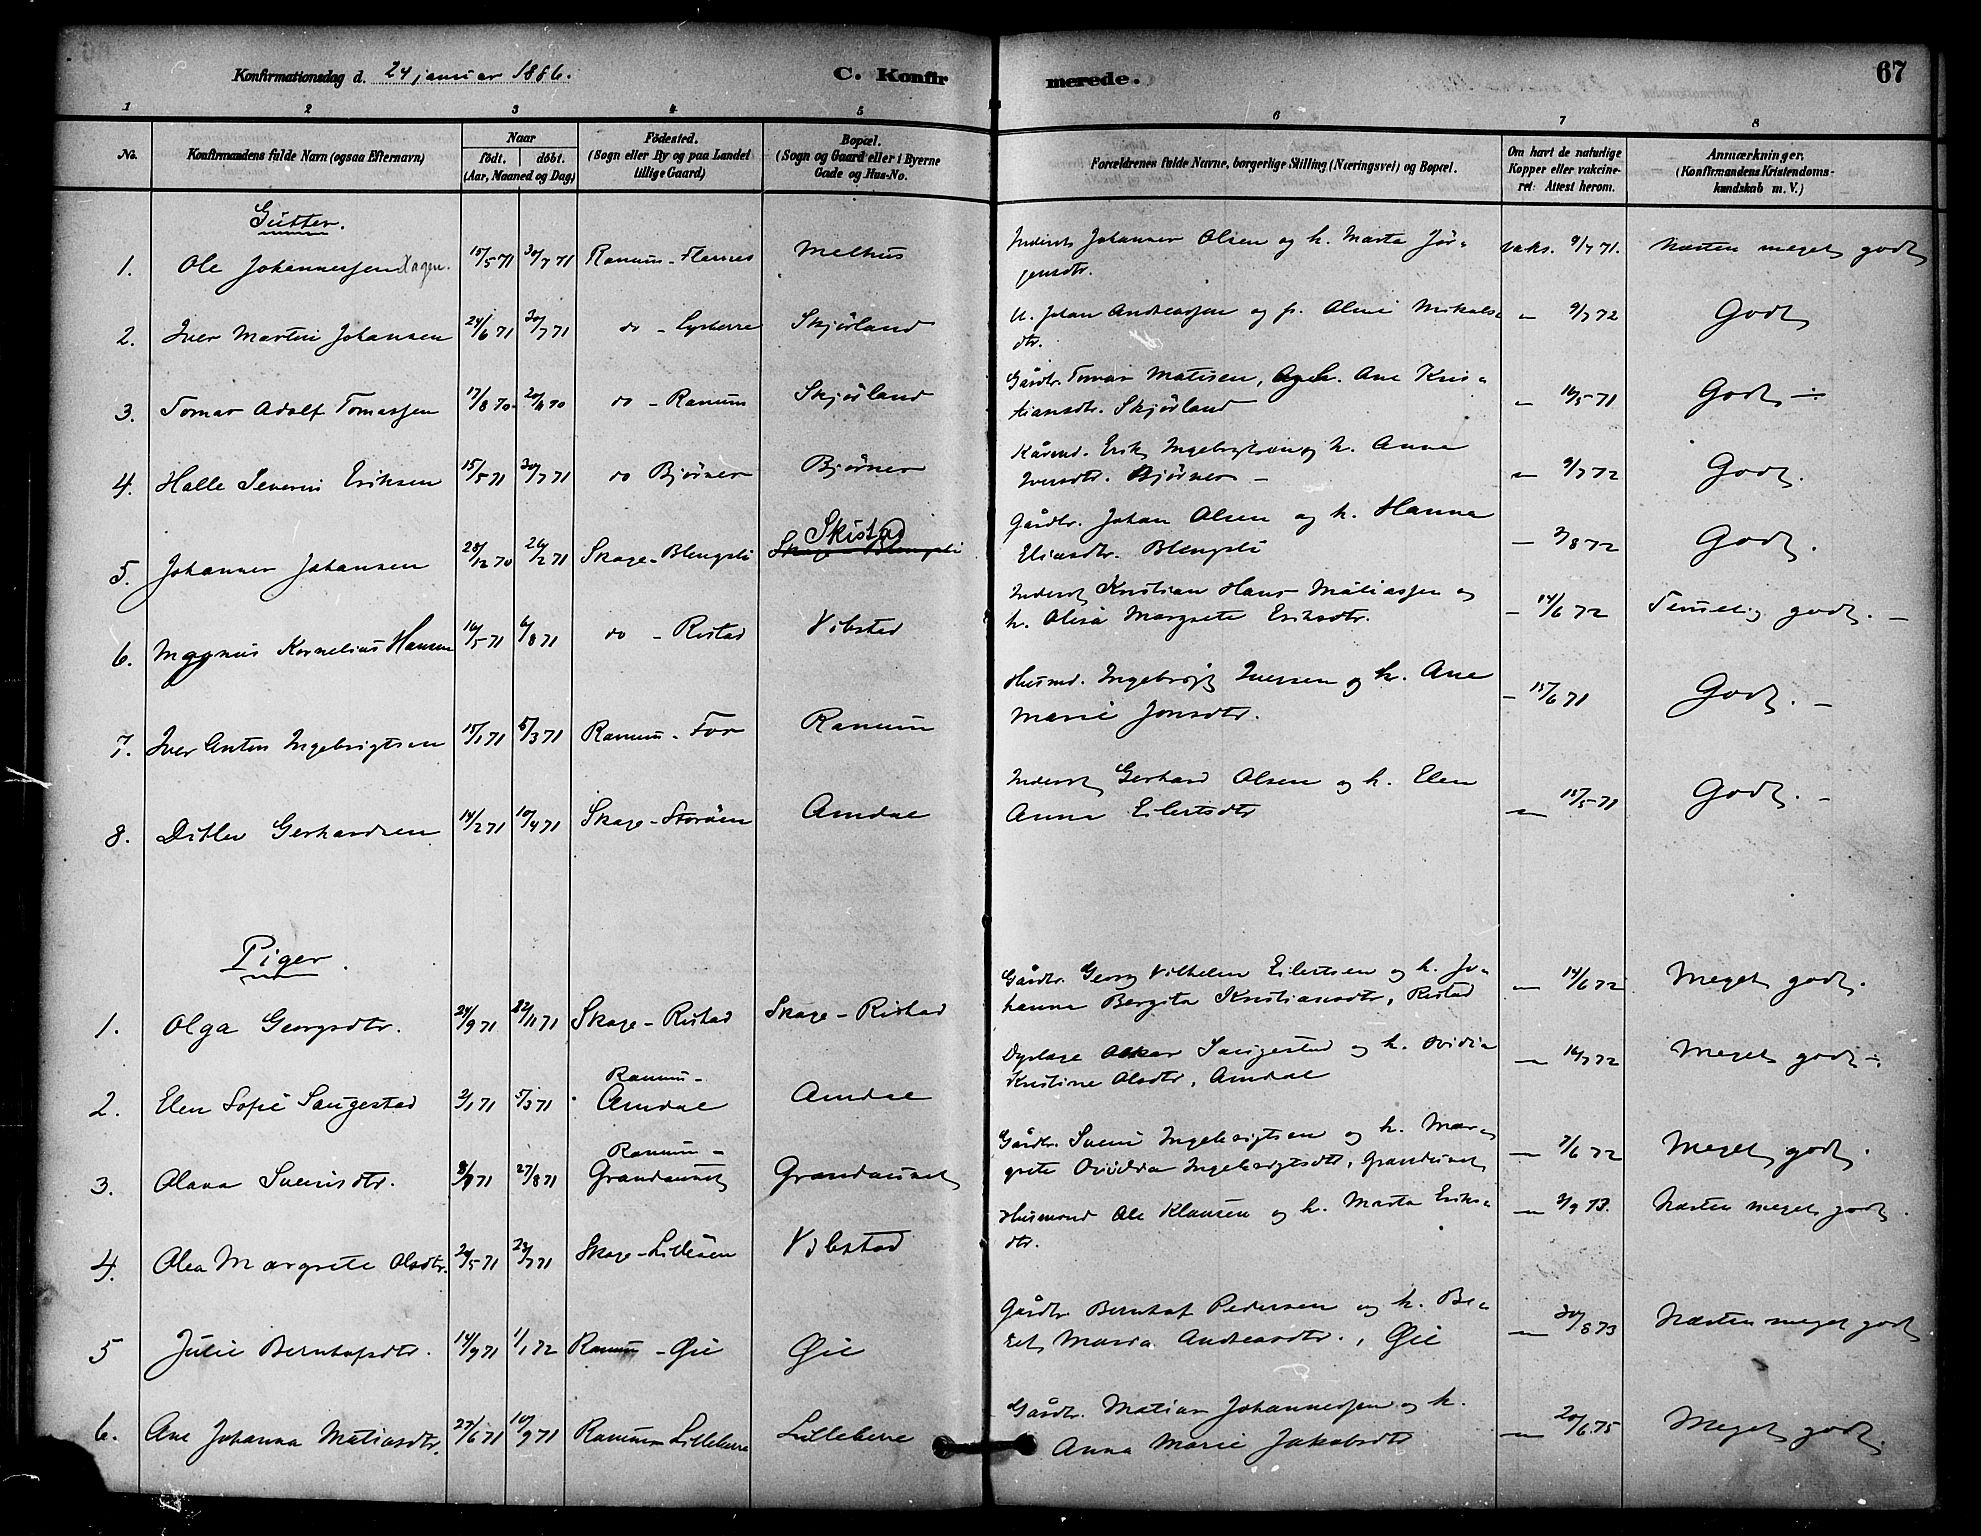 Konfirmationsdag d. 24 januar 1886. C. Konfirmerede. 67
1 2 3 4 5 6 7 8
No. Konfirmandens fulde Navn (ogsaa Efternavn) Naar födt. döbt. (Aar, Maaned og Dag) Födested. (Sogn eller By og paa Landet tillige Gaard) Bopæl. (Sogn og Gaard eller i Byerne Gade og Hus-No. Forældrenes fulde Navne, borgerlige Stilling (Næringsvei) og Bopæl. Om havt de naturlige Kopper eller vakcineret: Attest herom. Anmærkninger. (Konfirmandens Kristendomskundskab m. V.)
Gutter.
1. Ole Johannessen 15/5 71 30/7 71 Ranum - Melhus Inderst Johannes Olsen og h. Marta Jørgensdtr. vaks. 9/7 71. Næsten meget godt
2. Iver Martin Johansen 24/6 71 30/7 71 do - Skjørland U. Johan Andreassen og p. Aline Mikalsdtr. - 9/7 72 Godt
3. Tomas Adolf Tomassen 17/8 70 do - Ranum Skjørland Gårdbr. Tomas Matisen, og h. Ane Kristiansdtr. Skjørland - 16/5 71 Godt -
4. Halle Severin Eriksen 15/5 71 30/7 71 do Bjørnes Bjørnes Kårmd. Erik Ingebrigtsen og h. Anne Iversdtr. Bjørnes - - 9/7 72 Godt.
5. Johannes Johansen 28/12 70 26/2 71 Skage - Blengsli Skistad Skage - Blengsli Gårdbr. Johan Olsen og h. Hanna Eliasdtr. Blengsli - 3/8 72 Godt.
6. Magnus Kornelius Hansen 16/5 71 6/8 71 do - Ristad Vibstad Inderst Kristian Hans Matiassen og h. Olisa Margrete Eriksdtr. - 14/6 72 Temelig godt. -
7. Iver Anton Ingebrigtsen 15/1 71 5/3 71 Ranum - Foss Ranum Husmd. Ingebrigt Iversen og h. Ane Marie Jonsdtr. - 15/6 71 Godt. -
8. Ditlev Gerhardsen 14/2 71 10/4 71 Skage - Storøen Amdal Inderst Gerhard Olsen og h. Elen Anna Eilertsdtr - 15/5 71 Godt. -
Piger.
1. Olga Georgsdtr. 24/9 71 22/11 71 Skage - Ristad Skage - Ristad Gårdbr. Georg Vilhelm Eilertsen og h. Johanna Bergita Kristiansdtr, Ristad - 14/6 72 Meget godt.
2. Elen Sofie Saugestad 2/1 71 5/3 71 Ranum - Amdal Amdal Dyrlæge Oskar Saugestad og h. Ovidia Kristine Olsdtr, Amdal - 16/7 72 Meget godt -
3. Olava Sveinsdtr. 27/8 71 Ranum - Grandaunet Grandaunet Gårdbr. Svein Ingebrigtsen og h. Margrete Ovidia Ingebrigtsdtr, Grandaunet - 7/6 72 Meget godt.
4. Olea Margrete Olsdtr. 20/5 71 23/7 71 Skage - Lilleøen Vibstad Husmand Ole Klausen og h. Marta Eriksdtr. - 2/9 73. Næsten meget godt.
5 Julie Berntofsdtr. 14/9 71 1/1 72 Ranum - Øie Øie Gårdbr Berntof Pedersen og h. Beret Maria Andreasdtr., Øie - 20/8 73 Næsten meget godt
6. Ane Johanna Matiasdtr. 27/6 71 10/9 71 Ranum Lilleberre Lilleberre Gårdbr. Matias Johannessen og h. Anna Marie Jakobsdtr - 20/6 75 Meget godt.